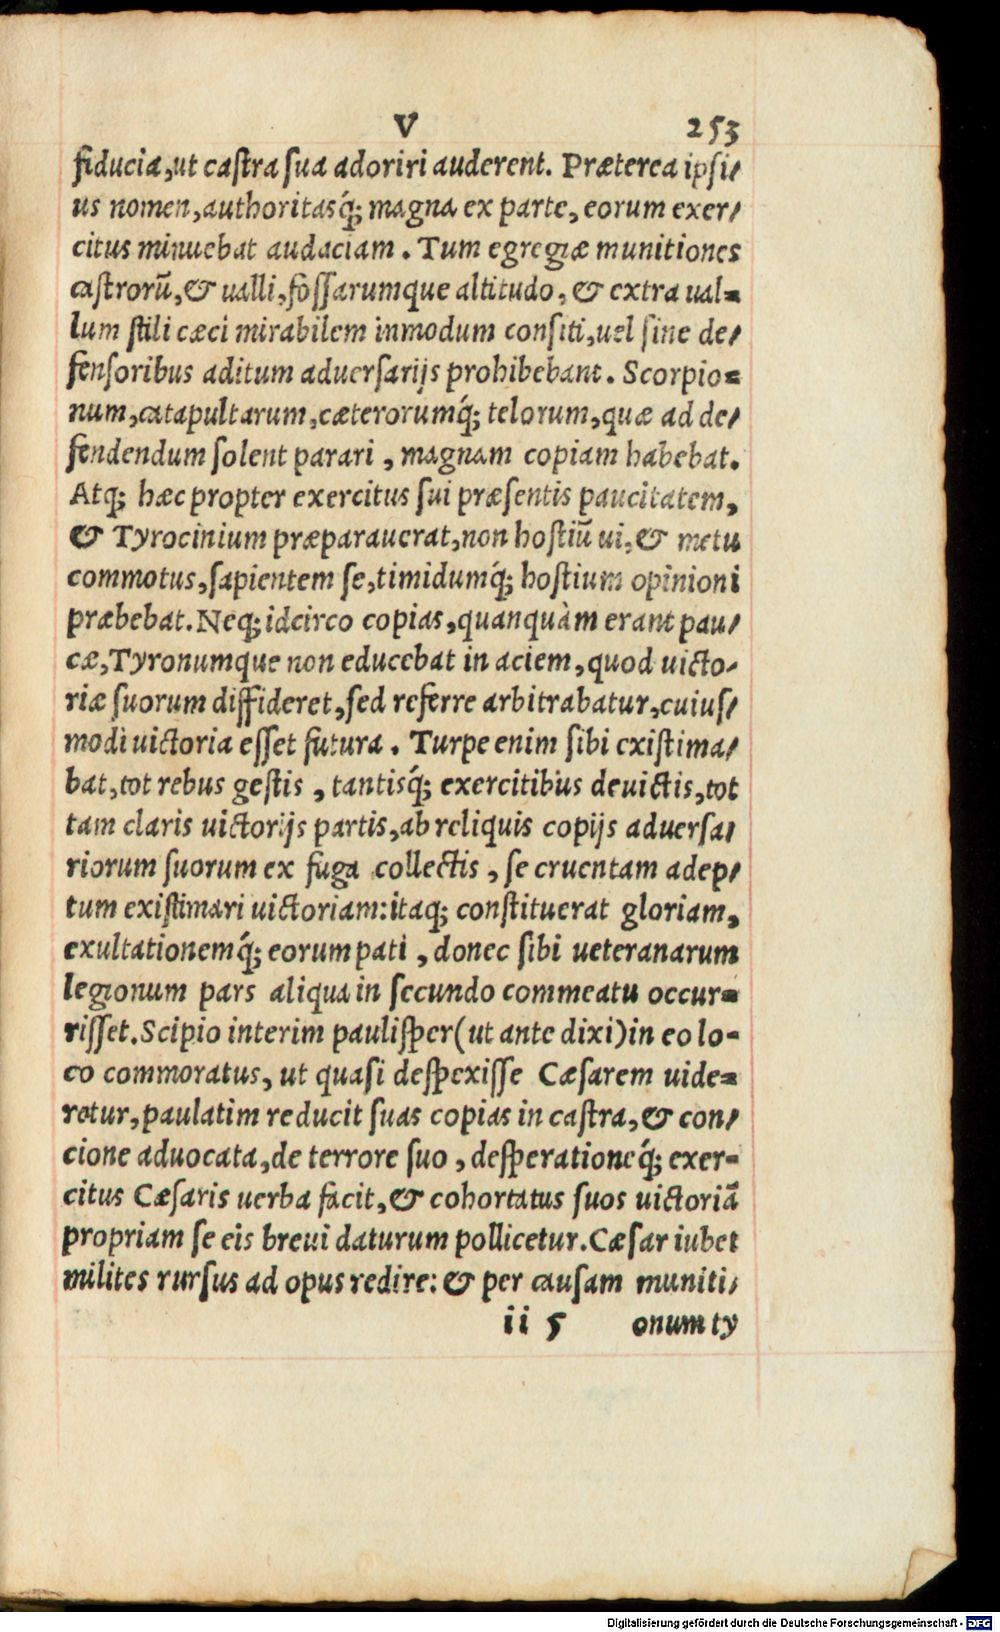 V 253
fiducia,ut castra sua adoriri auderent. Præterea ipsi/
us nomen,authoritasq́; magna ex parte, eorum exer/
citus minuebat audaciam. Tum egregiæ munitiones
castrorũ,& ualli,fossarumque altitudo, & extra ual=
lum stili cæci mirabilem inmodum consiti,uel sine de/
fensoribus aditum aduersarijs prohibebant. Scorpio=
num,catapultarum,cæterorumq́; telorum,quæ ad de/
fendendum solent parari, magnam copiam habebat.
Atq; hæc propter exercitus sui præsentis paucitatem,
& Tyrocinium præparauerat,non hostiũ ui, & metu
commotus,sapientem se,timidumq́; hostium opinioni
præbebat. Neq; idcirco copias,quanquàm erant pau/
cæ,Tyronumque non educebat in aciem,quod uicto-
riæ suorum diffideret,sed referre arbitrabatur,cuius/
modi uictoria esset futura. Turpe enim sibi existima/
bat,tot rebus gestis, tantisq́; exercitibus deuictis,tot
tam claris uictorijs partis,ab reliquis copijs aduersa/
riorum suorum ex fuga collectis, se cruentam adep/
tum existimari uictoriam:itaq; constituerat gloriam,
exultationemq́; eorum pati, donec sibi ueteranarum
legionum pars aliqua in secundo commeatu occur=
risset. Scipio interim paulisper(ut ante dixi)in eo lo-
co commoratus, ut quasi despexisse Cæsarem uide=
retur,paulatim reducit suas copias in castra,& con/
cione aduocata,de terrore suo, desperationeq́; exer-
citus Cæsaris uerba facit,& cohortatus suos uictoriã
propriam se eis breui daturum pollicetur. Cæsar iubet
milites rursus ad opus redire: & per causam muniti/
ii 5 onum ty
Digitalisierung gefördert durch die Deutsche Forschungsgemeinschaft - DFG